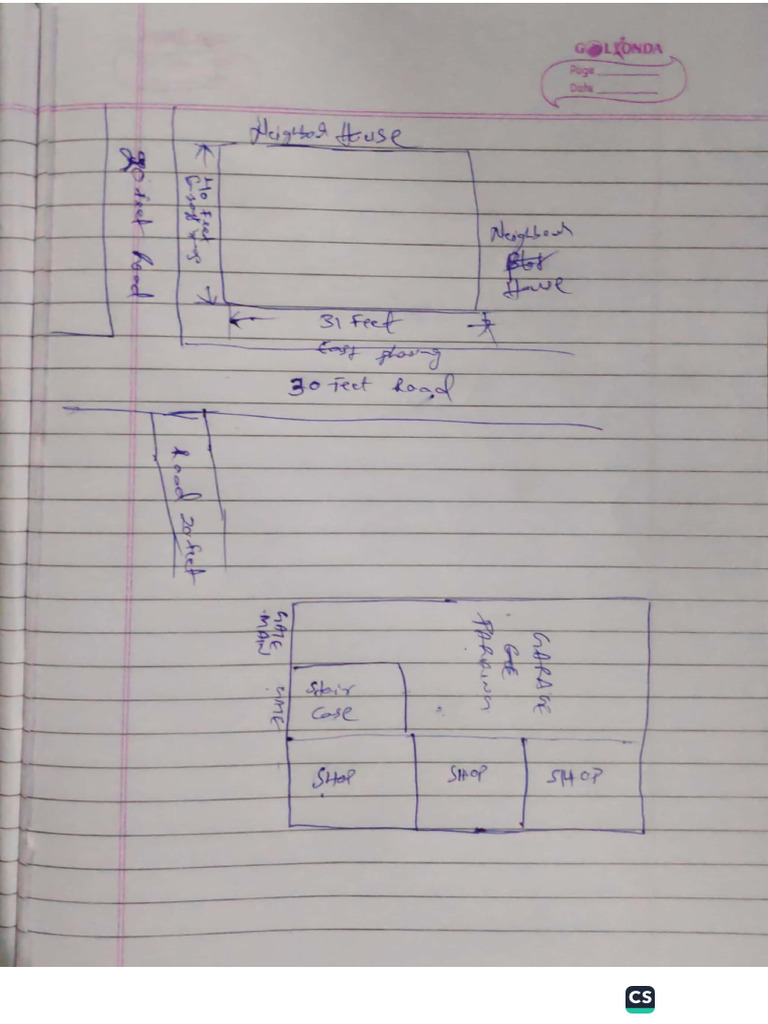 GOLKONDA
Page
Date
Neighbor House
40 feet
20 feet Road
Neighbour
House
31 Feet
East facing
30 Feet Road
Road 20 feet
MAIN
GATE
GARAGE
PARKING
GATE
Stair
Case
SHOP
SHOP
SHOP
CS